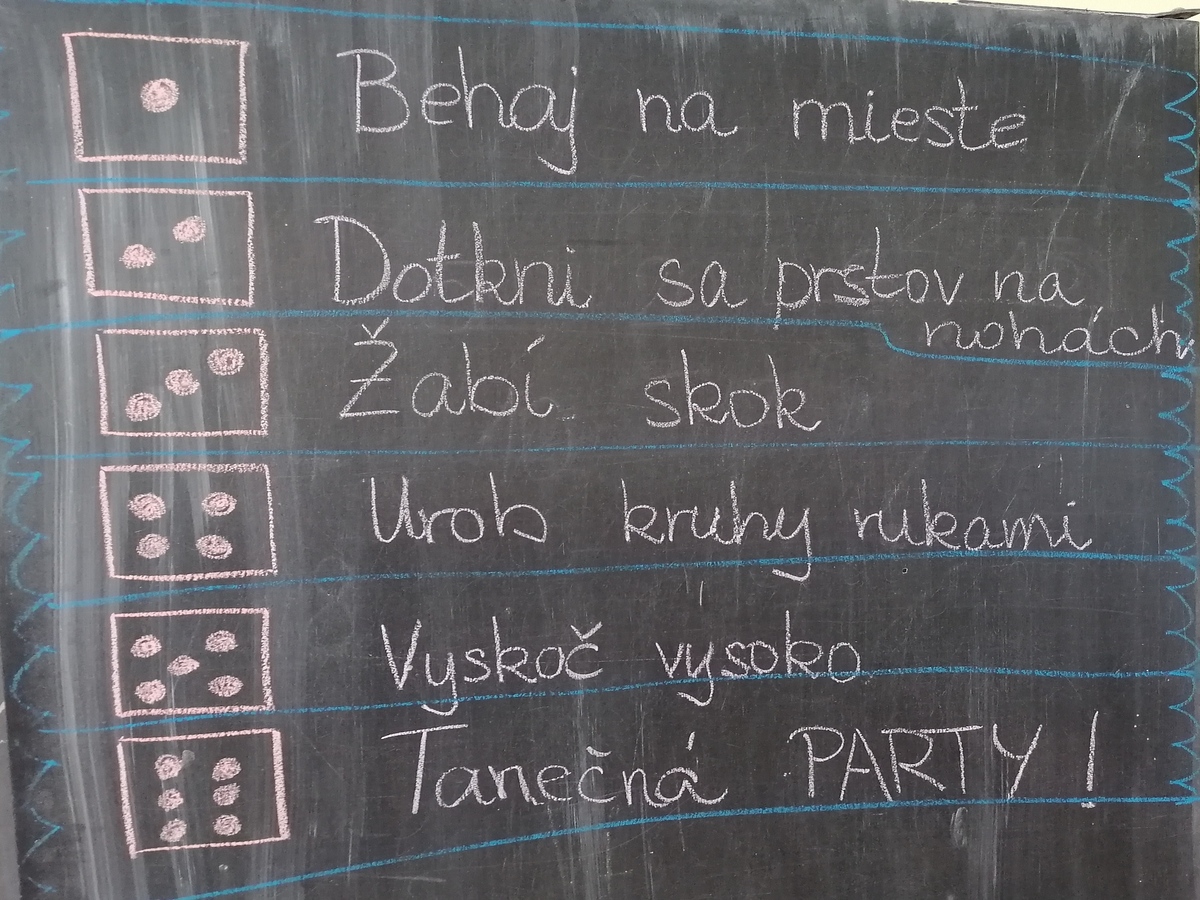 Behaj na mieste
Dotkni sa prstov na
nohách
Žabí skok
Urob kruhy rukami
Vyskoč vysoko
Tanečná PARTY!